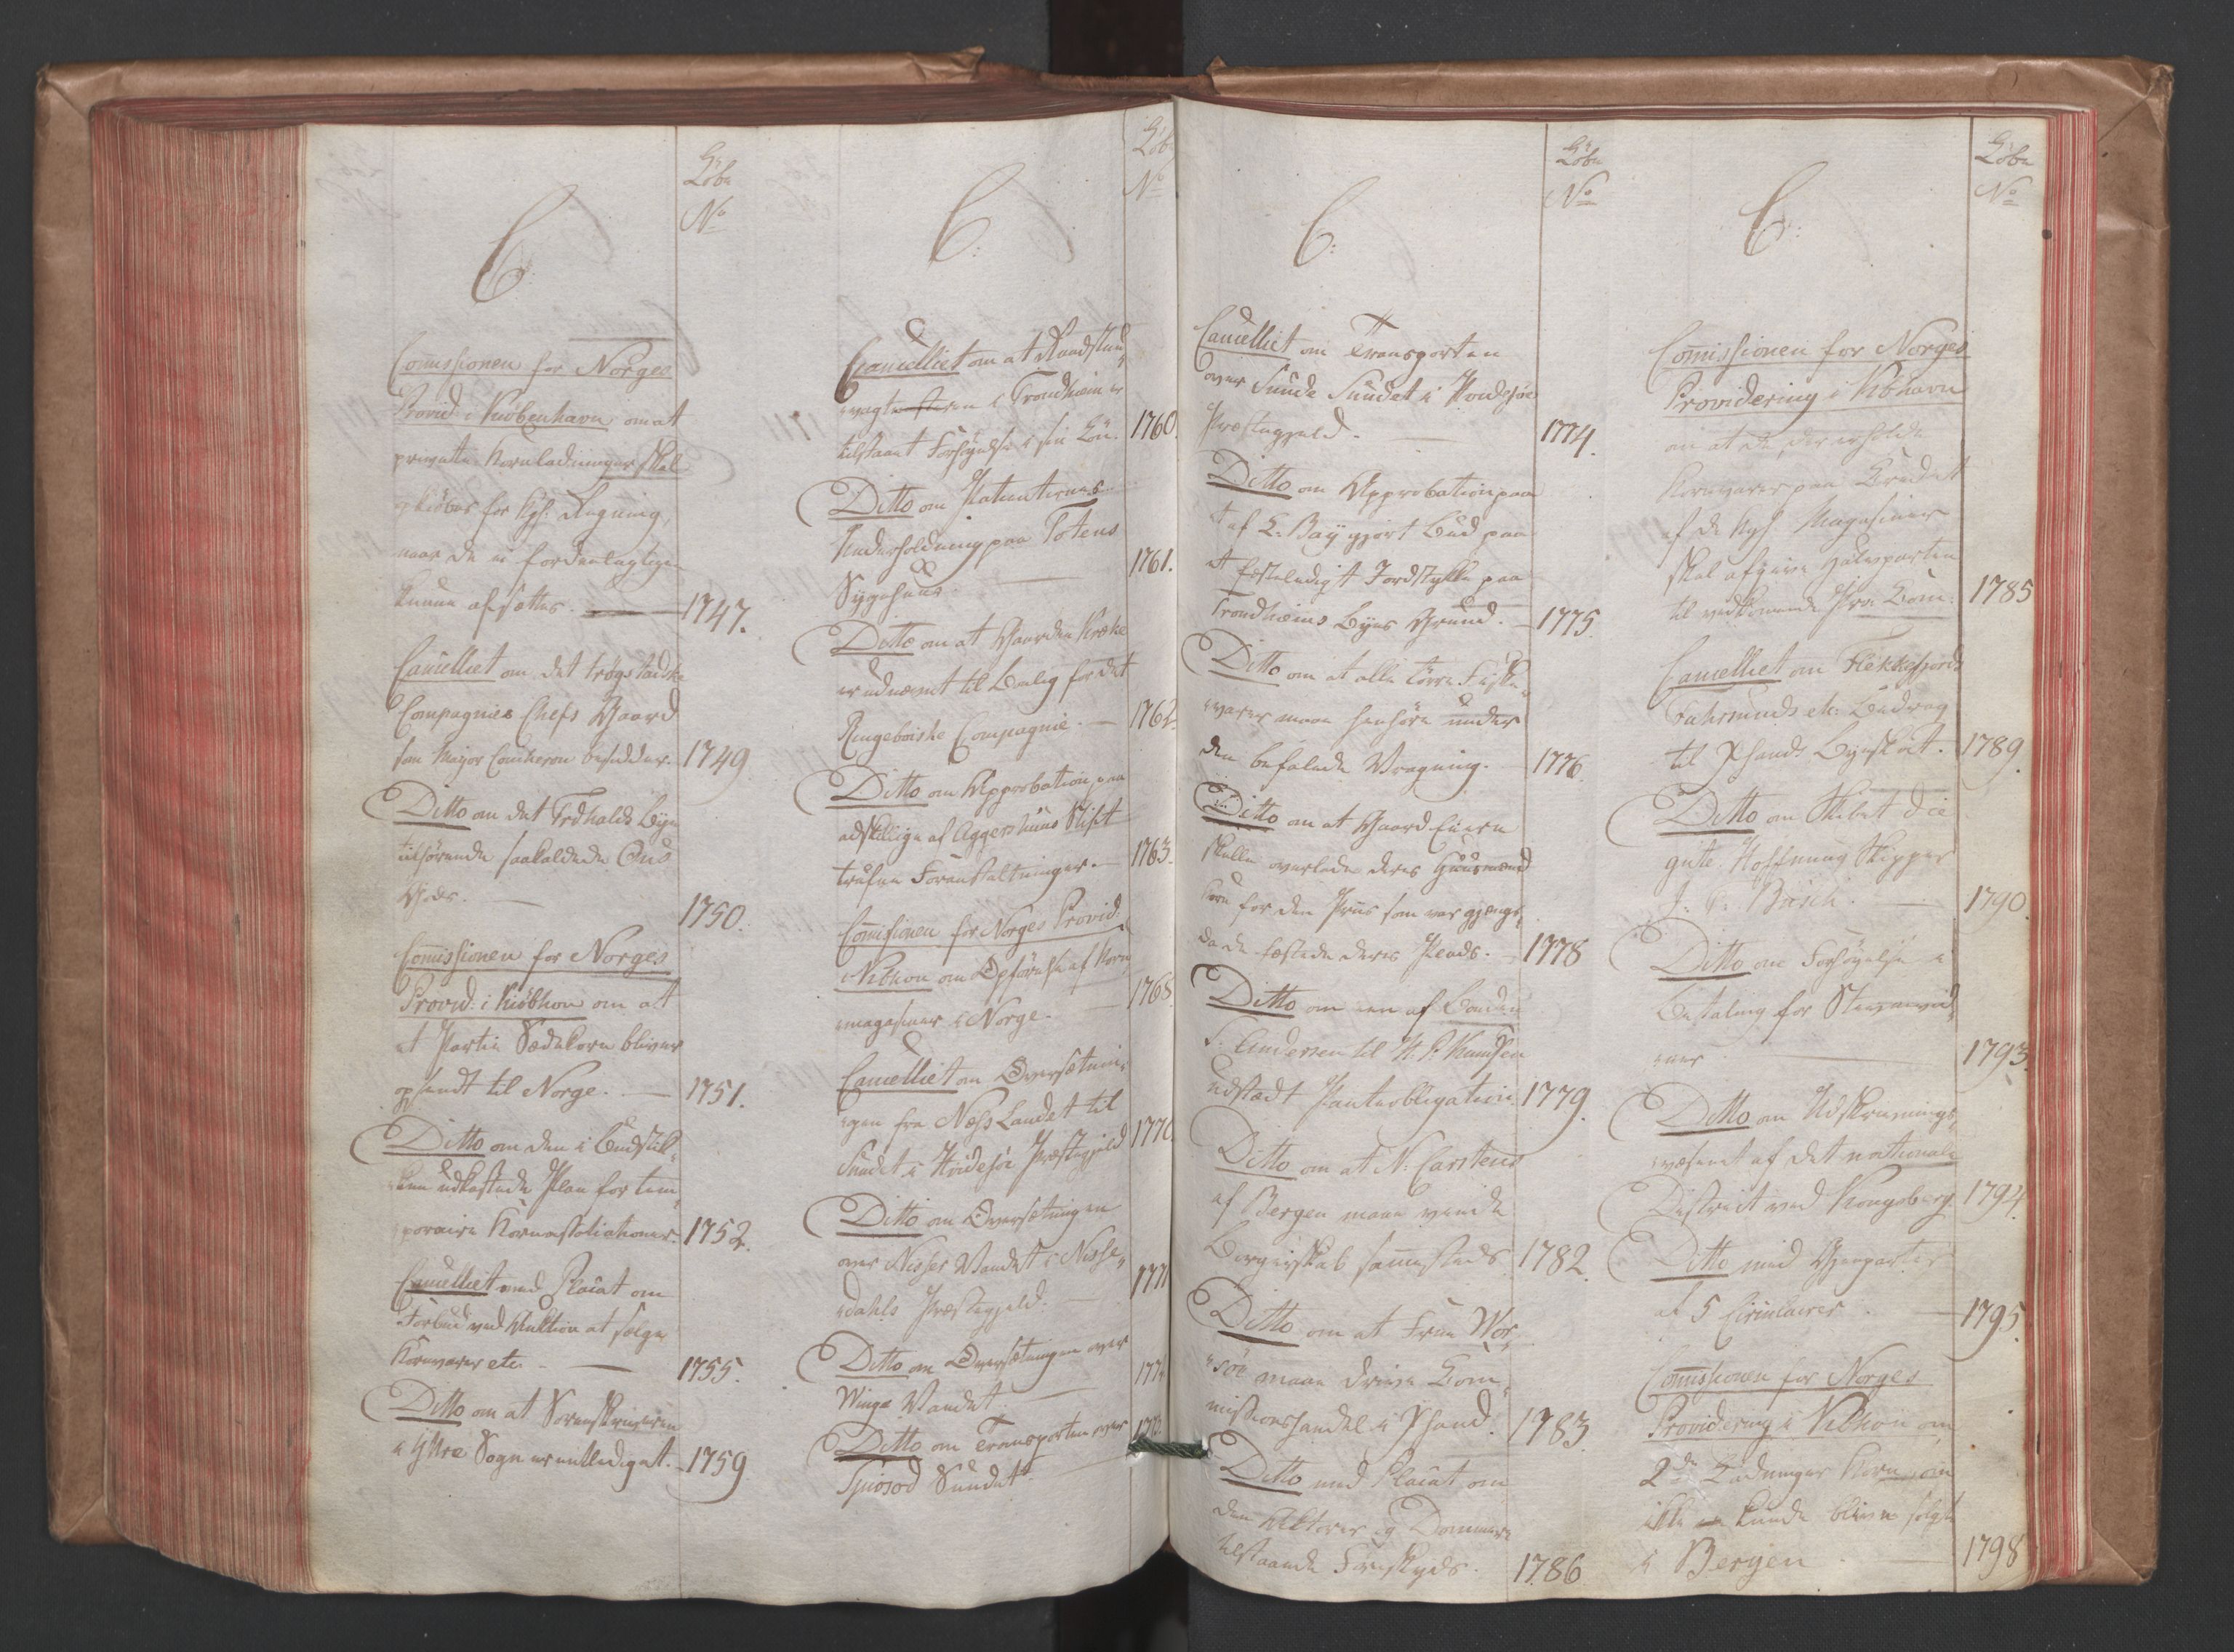 C.
Løbe
No
Comissionen for Norges
Provid: i Kiøbenhavn om at
private Kornladninger skal
opkiøbes for Kgl: Regning,
naar de ei fordeelagtigen
kunne afsættes. — 1747.
Cancelliet om det trøgstadske
Compagnies Chefs Gaard
som Major Coucheron besidder. 1749.
Ditto om det Frdhalds Bye
tilhørende saakaldede Ous
Gods. — 1750.
Comissionen for Norges
Provid: i Kiøbhvn om at
et Partie Sædekorn bliver
opsendt til Norge. — 1751.
Ditto om den i Budstik-
ken udkastede Plan for tem-
poraire Kornassotiationer. 1752.
Cancelliet med Placat om
Forbud ved Auktion at sælge
Kornvarer etc. — 1755.
Ditto om at Sorenskriveren
i Yttre Sogn er entlediget. 1759
C:
Løbe
No
Cancelliet om at Raadstue-
vagtmesteren i Trondhiem er
tilstaaet Forhøyelse i sin Løn. 1760.
Ditto om Patienternes
Underholdning paa Totens
Sygehuus. — 1761.
Ditto om at Gaarden Kræke
er udnævnt til Bolig for det
Ringeboiske Compagnie. — 1762
Ditto om Approbation paa
adskillige af Aggershuus Stift
trufne Foranstaltninger. — 1763.
Comissionen for Norges Provid:
i Kibhvn om Opførelse af Korn-
magasiner i Norge. — 1768.
Cancelliet om Oversætnin-
gen fra Næss Landet til
Sundet i Hvidesøe Præstegjeld 1770
Ditto om Oversætningen
over Nisser Vandet i Nisse-
dahls Præstegjeld. — 1771
Ditto om Oversætningen over
Winge Vandet. — 1772
Ditto om Transporten over 1773.
Tjuosod Sundet. —
C:
Løbe
No
Cancelliet om Transporten
over Sunde Sundet i Hvidesøe
Præstegjeld. — 1774.
Ditto om Approbation paa
et af L. Bay gjort Bud paa
et fæsteledigt Jordstykke paa
Trondhiems Byes Grund. — 1775.
Ditto om at alle tørre Fiske-
varer maae henhøre under
den befalede Vragning. — 1776.
Ditto om at Gaard Eiere
skulle overlade deres Huusmænd
Korn for den Priis som var gjængs,
da de fæstede deres Plads. — 1778
Ditto om een af Bonden
S. Andersen til H. P. Knudsen
udstædt Panteobligation. 1779.
Ditto om at N: Carstens
af Bergen maae vinde
Borgerskab sammesteds 1782.
Ditto om at Frue Wor-
søe maae drive Com-
missionshandel i Xsand. 1783.
Ditto med Placat om
den Aktorer og Dommere
tilstaaede Forskuds. 1786
C:
Løbe
No
Comissionen for Norges
Providering i Kbhavn
om at de, der erholde
Kornvarer paa Credit
af de Kgl Magasiner
skal afgive Gjenparten
til vedkommende Pro: Com: 1785
Cancelliet om Flekkefjords
Farsunds etc: Bidrag
til Xsands Byeskat. 1789.
Ditto om Skibet die
gute Hoffnung Skipper
J. C. Büsch. — 1790.
Ditto om Forhøyelse i
Betaling for
— 1793.
Ditto om Udskrivnings-
væsenet af det nationale
District ved Kongsberg. 1794.
Ditto med Gjenparter
af 5 Circulairer. — 1795.
Comissionen for Norges
Providering i Kibhvn om
2de Ladninger Korn, som
ikke kunde blive solgte
i Bergen. — 1798